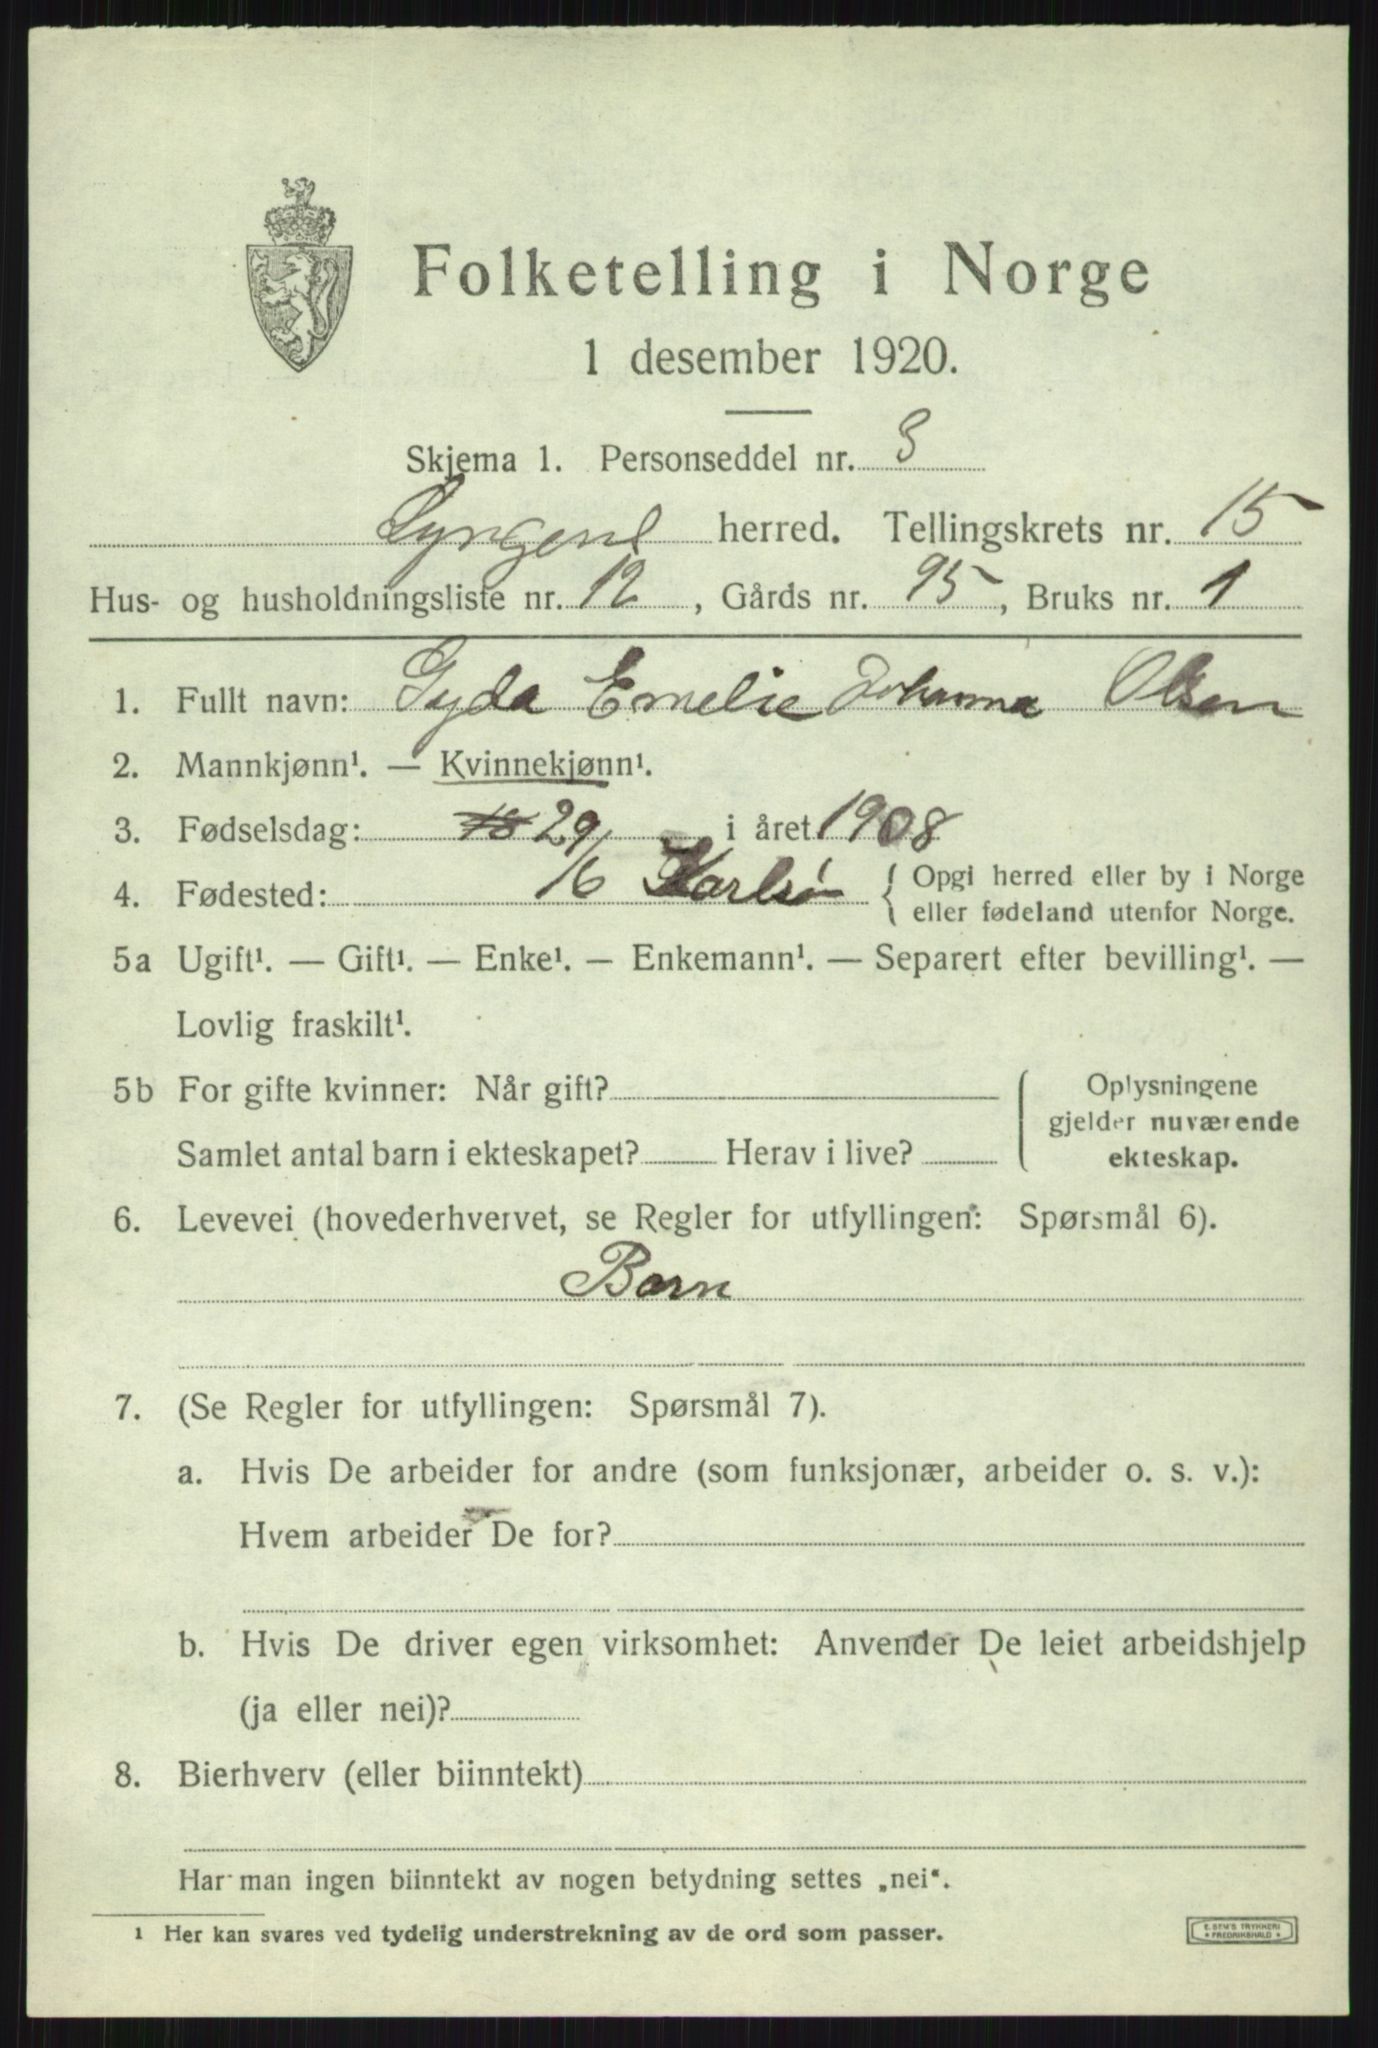 Folketelling i Norge
1 desember 1920.
Skjema 1. Personseddel nr. 3
Lyngens herred. Tellingskrets nr. 15
Hus- og husholdningsliste nr. 12, Gårds nr. 95, Bruks nr. 1
1. Fullt navn: Gyda Emelie Johanna Olsen
2. Mannkjønn¹. — Kvinnekjønn¹.
3. Fødselsdag: 18 29/6 i året 1908
4. Fødested: Karlsø { Opgi herred eller by i Norge
eller fødeland utenfor Norge.
5a Ugift¹. — Gift¹. — Enke¹. — Enkemann¹. — Separert efter bevilling¹. —
Lovlig fraskilt¹.
5b For gifte kvinner: Når gift? Oplysningene
gjelder nuværende
Samlet antal barn i ekteskapet? Herav i live? ekteskap.
6. Levevei (hovederhvervet, se Regler for utfyllingen: Spørsmål 6).
Barn
7. (Se Regler for utfyllingen: Spørsmål 7).
a. Hvis De arbeider for andre (som funksjonær, arbeider o. s. v.):
Hvem arbeider De for?
b. Hvis De driver egen virksomhet: Anvender De leiet arbeidshjelp
(ja eller nei)?
8. Bierhverv (eller biinntekt)
Har man ingen biinntekt av nogen betydning settes „nei“.
¹ Her kan svares ved tydelig understrekning av de ord som passer.
E. SEM'S TRYKKERI
* FREDRIKSHALD *